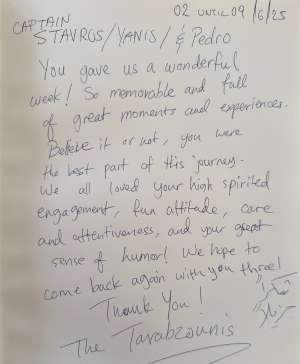 02 UNTIL 09/6/25
CAPTAIN
STAVROS/YANIS/ & Pedro
You gave us a wonderful
week! So memorable and full
of great moments and experiences.
Believe it or not, you were
the best part of this journey.
We all loved your high spirited
engagement, fun attitude, care
and attentiveness, and your great
sense of humor! We hope to
come back again with you three!
Thank You!
The Tarabzounis